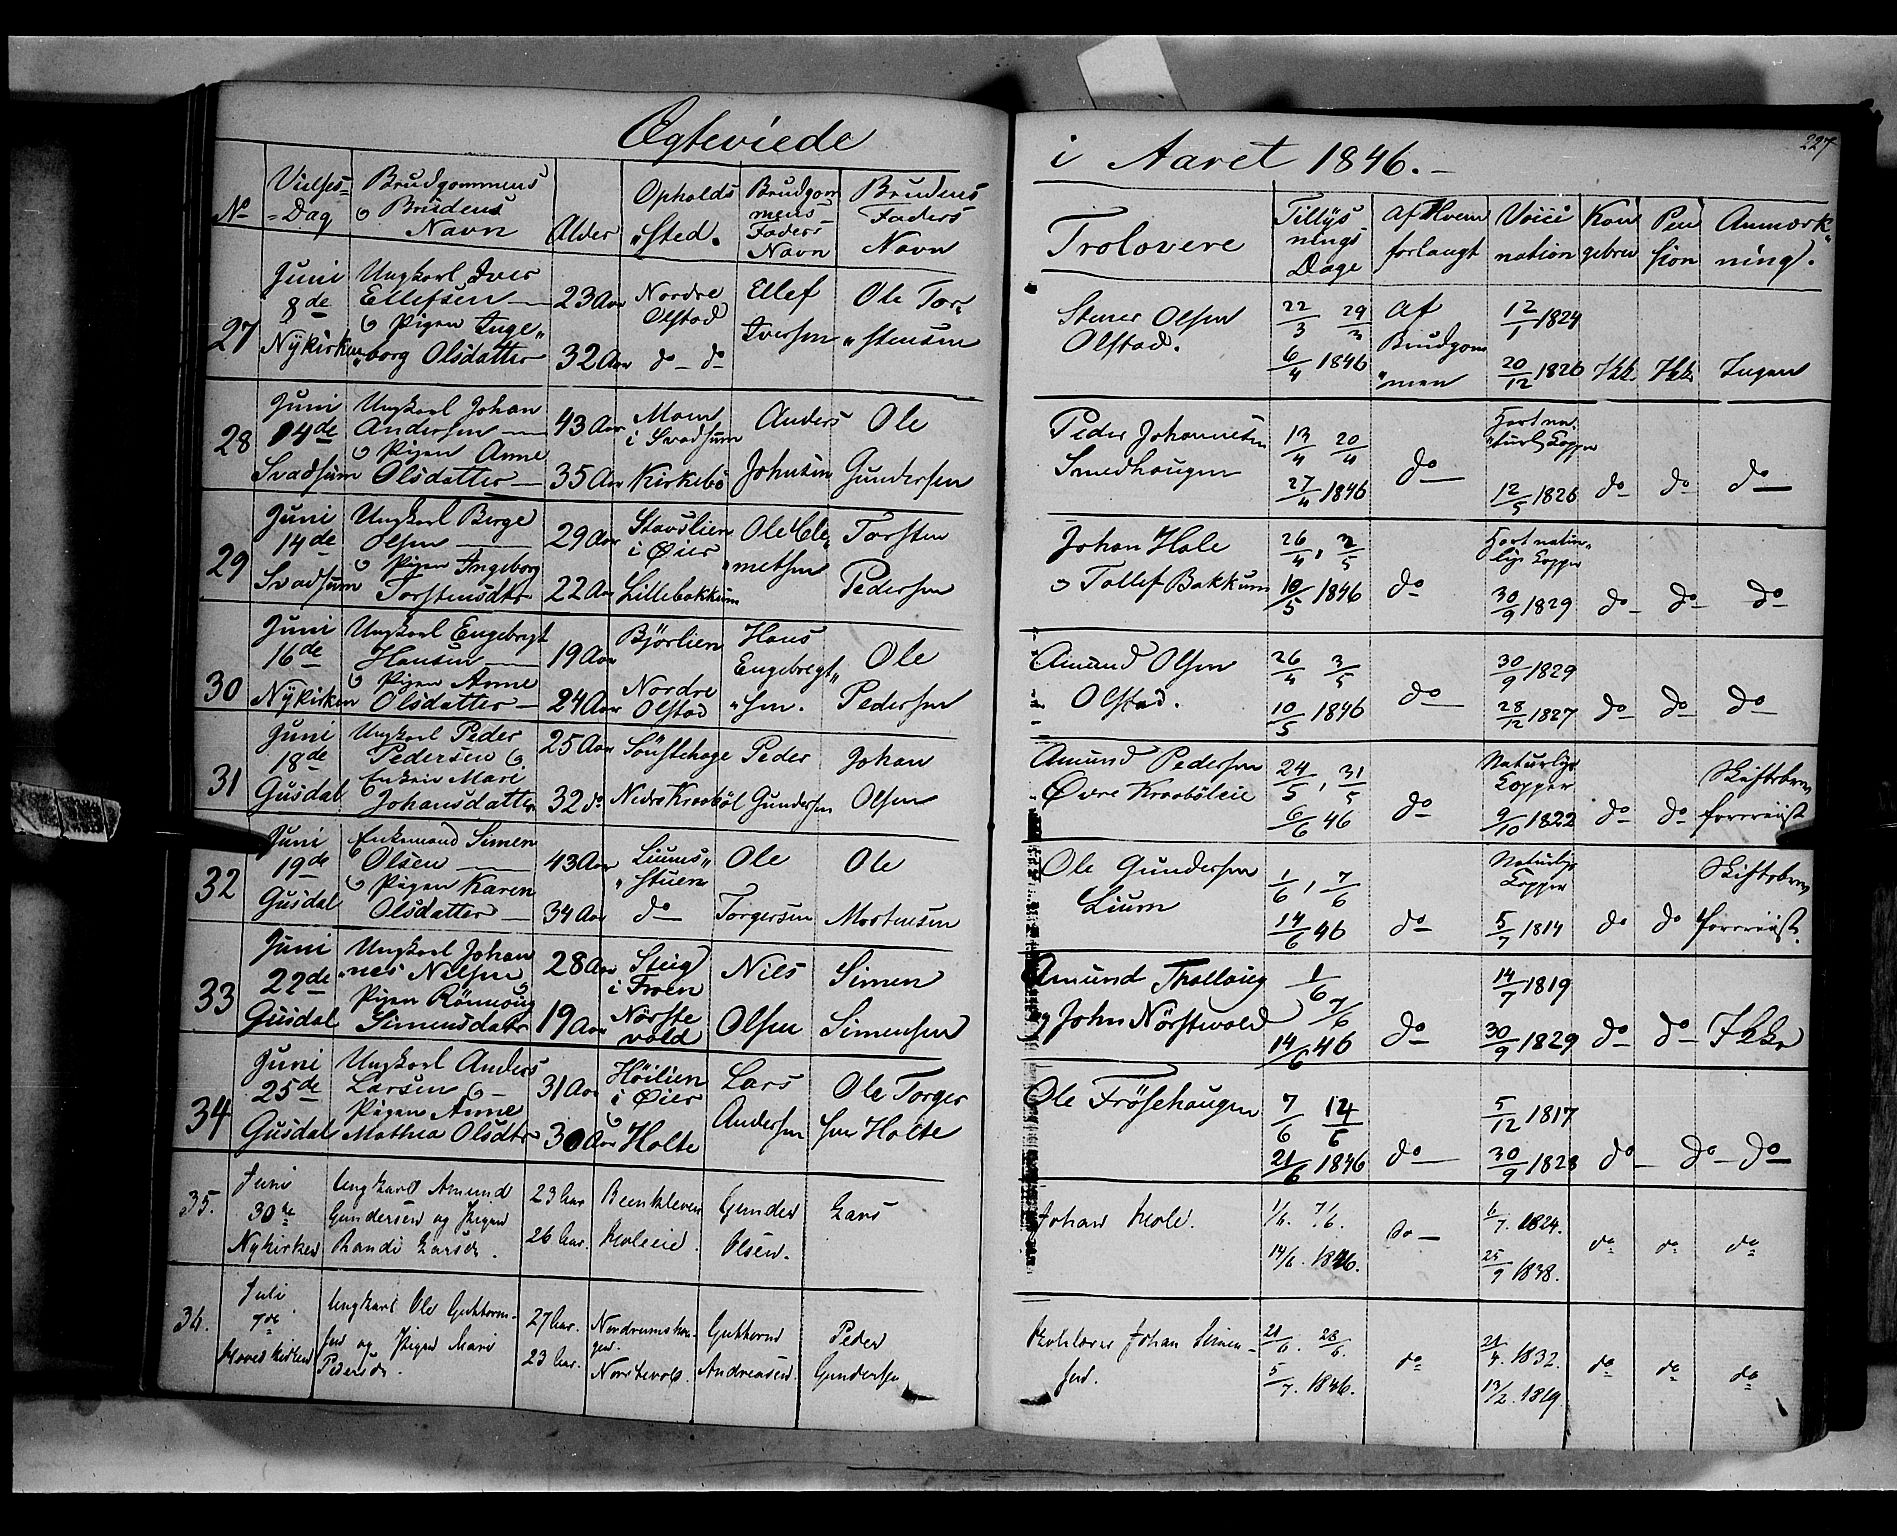 Ægteviede i Aaret 1846.
227
No
Vielses=
=Dag
Brudgommens
& Brudens
Navn
Alder
Opholds
"sted.
Brudgom
mens
Faders
Navn
Brudens
Faders
Navn
Trolovere
Tillys
nings
Dage
Af Hvem
forlangt
Vacci
nation
Kon
gebrev
Pen
sion
Anmærk"
ning.
27
Juni
8de
Nykirken
Ungkarl Iver
Ellefsen
& Pigen Inge"
"borg Olsdatter
23 Aar
32 Aar
Nordre
Olstad
do - do
Ellef
Iversen
Ole Tor"
"stensen
Stener Olsen
Olstad.
22/3 29/3
6/4 1846
Af
Brudgom
"men
12/1 1824
20/12 1826
Ikk. Ikk. Ingen
28
Juni
14de
Svadsum
Ungkarl Johan
Andersen
& Pigen Anne
Olsdatter
43 Aar
35 Aar
Moen
i Svadsum
Kirkebö
Anders
Johnsen
Ole
Gundersen
Peder Johannesen
Smedhaugen
13/4 20/4
27/4 1846
do
Havt na
"turl. Kopper
12/5 1826
do do do
29
Juni
14de
Svadsum
Ungkarl Børge
Olsen
& Pigen Ingeborg
Torstensdtr
29 Aar
22 Aar
Stavslien
i Øier
Lillebakkum
Ole Cle"
"metsen
Torsten
Pedersen
Johan Hole
& Tollef Bakkum
26/4, 3/5
10/5 1846
do
Havt natur"
lige Kopper
30/9 1829
do do do
30
Juni
16de
Nykirken
Ungkarl Engebregt
Hansen
& Pigen Anne
Olsdatter
19 Aar
24 Aar
Bjørlien
Nordre
Olstad
Hans
Engebregt"
"sen.
Ole
Pedersen
Amund Olsen
Olstad.
26/4 3/5
10/5 1846
do
30/9 1829
28/12 1827
do do do
31
Juni
18de
Gusdal
Ungkarl Peder
Pedersen &
Enken Mari
Johansdatter
25 Aar
32 do
Söustehage
Nedre Kraaböl
Peder
Gundersen
Johan
Olsen
Amund Pedersen
Øvre Kraaböleie
24/5, 31/5
6/6 46
do
Naturlige
Kopper
9/10 1822
do do
Skiftebrev
foreviist
32
Juni
19de
Gusdal
Enkemand Simen
Olsen
& Pigen Karen
Olsdatter
43 Aar
34 Aar
Liums"
"stuen
do
Ole
Torgersen
Ole
Mortensen
Ole Gundersen
Lium
1/6, 7/6
14/6 46
do
Naturlige
Kopper
5/7 1814
do do
Skiftebrev
foreviist.
33
Juni
22de
Gusdal
Ungkarl Johan
"nes Nelsen
& Pigen Rönnoug
Simensdatr
28 Aar
19 Aar
Steig
i Froen
Nörste
vold
Nils
Olsen
Simen
Simensen
Amund Thalloug
og John Nörstevold
1/6 7/6
14/6 46
do
14/7 1819
30/9 1829
do do Ikke
34
Juni
25de
Gusdal
Ungkarl Anders
Larsen &
Pigen Anne
Mathea Olsdtr
31 Aar
30 Aar
Höilien
i Øier
& Holte
Lars
Andersen
Ole Torger
sen Holte
Ole Frösehaugen
7/6 14/6
21/6 1846
do
5/12 1817
30/9 1828
do do do
35.
Juni
30te
Nykirken
Ungkarl Amund
Gundersen og Pigen
Randi Larsdr.
23 Aar
26 Aar.
Beenkleven
Holeeie.
Gunder
Olsen.
Lars
Johan Hole.
1/6. 7/6.
14/6. 1846.
do
6/7. 1824.
25/9 1838.
do do do
36.
Juli
7de
Hovedkirken
Ungkarl Ole Guttorm-
sen og Pigen Mari
Pedersdr.
27 Aar.
23 Aar.
Nordrumshau
gen.
Norstevold.
Guttorm
Andreasen.
Peder
Gundersen
Skolelærer Johan Simen-
sen.
21/6. 28/6.
5/7. 1846.
do
21/4. 1832.
13/2. 1819.
do do do